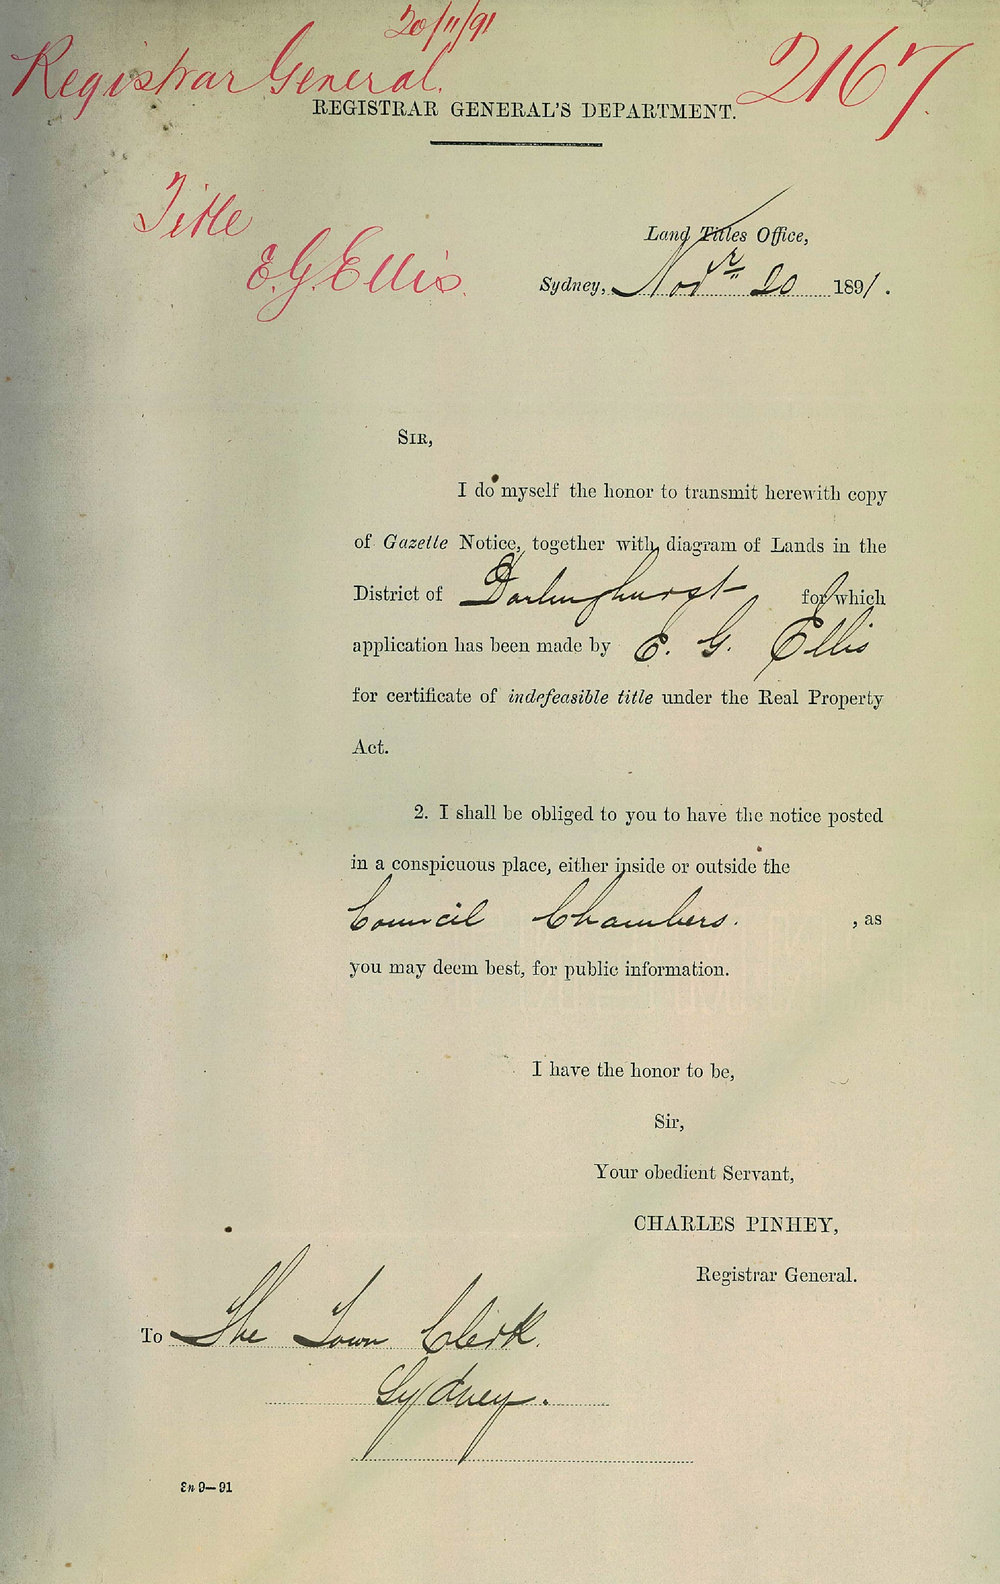 20/11/91
Registrar General.
2167
REGISTRAR GENERAL'S DEPARTMENT.
Title
E. G. Ellis.
Land Titles Office,
Sydney, Novr 20 1891.
SIR,
I do myself the honor to transmit herewith copy
of Gazette Notice, together with diagram of Lands in the
District of Darlinghurst for which
application has been made by E. G. Ellis
for certificate of indefeasible title under the Real Property
Act.
2. I shall be obliged to you to have the notice posted
in a conspicuous place, either inside or outside the
Council Chambers. , as
you may deem best, for public information.
I have the honor to be,
Sir,
Your obedient Servant,
CHARLES PINHEY,
Registrar General.
To The Town Clerk.
Sydney.
9—91